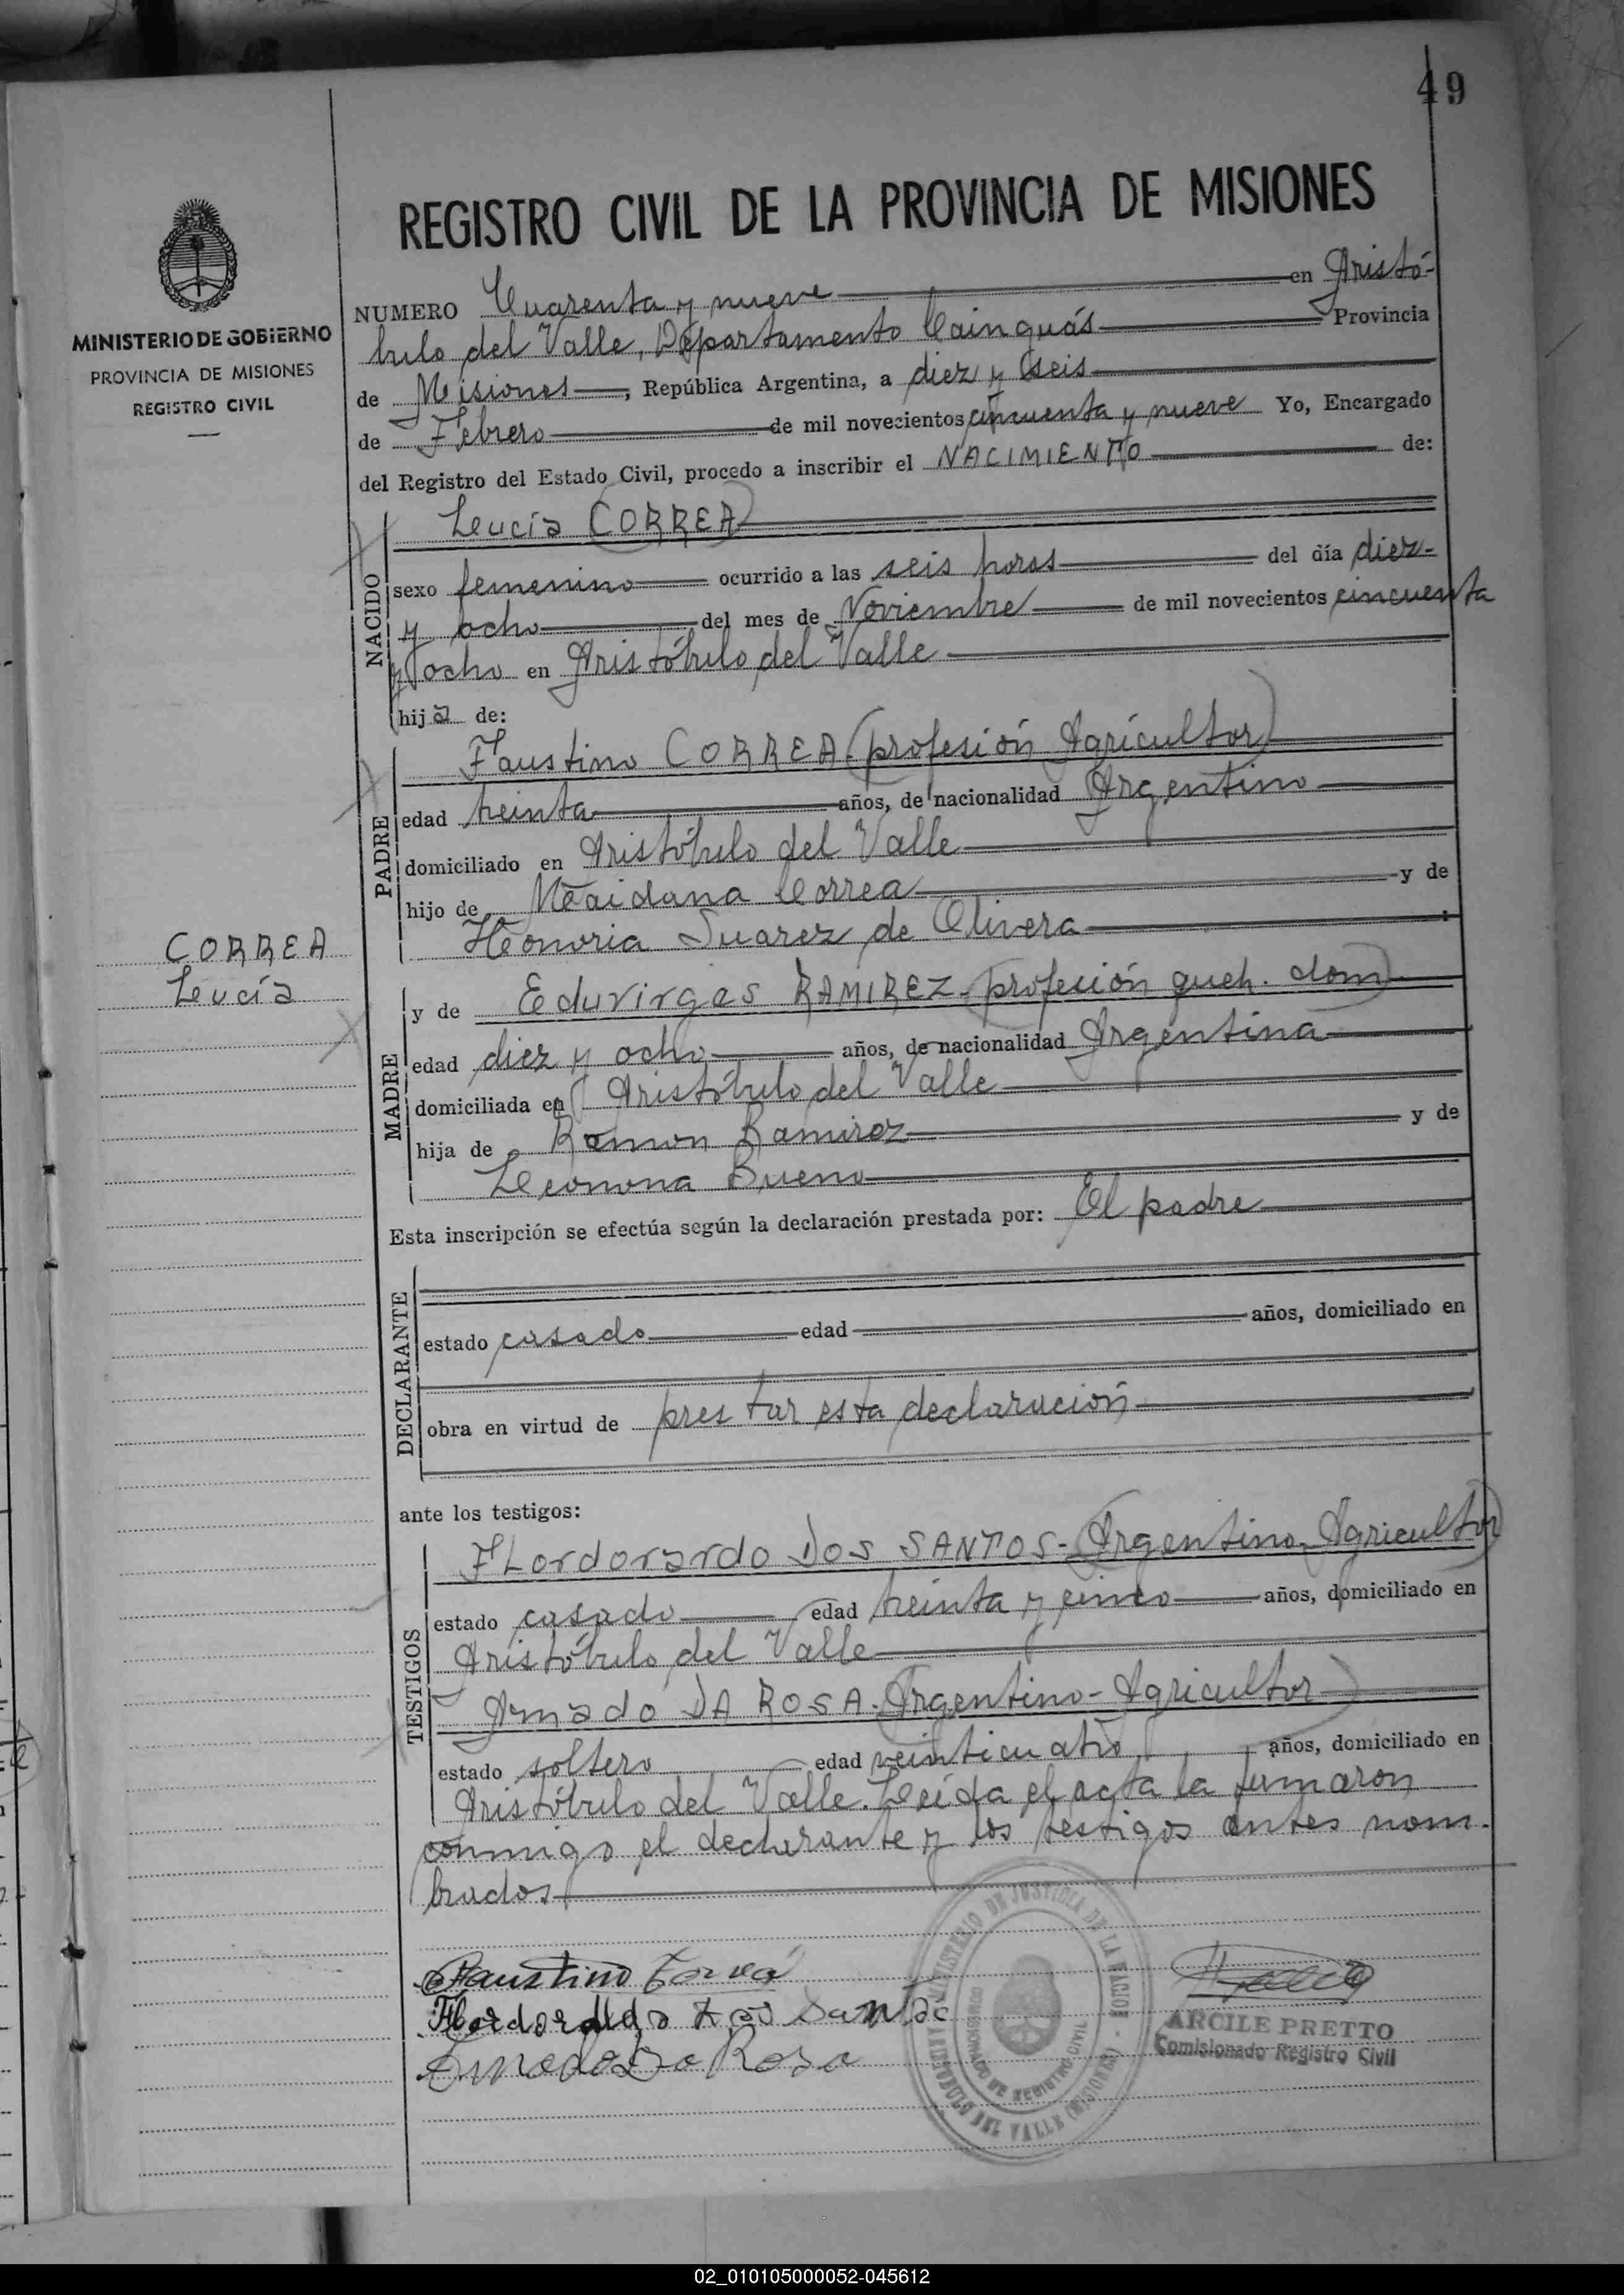 49
REGISTRO CIVIL DE LA PROVINCIA DE MISIONES
MINISTERIO DE GOBIERNO
PROVINCIA DE MISIONES
REGISTRO CIVIL
NUMERO Cuarenta y nueve en Aristó-
bulo del Valle, Departamento Cainguás Provincia
de Misiones, República Argentina, a diez y seis
de Febrero de mil novecientos cincuenta y nueve Yo, Encargado
del Registro del Estado Civil, procedo a inscribir el NACIMIENTO de:
NACIDO
Leucía CORREA
sexo femenino ocurrido a las seis horas del día diez-
y ocho del mes de Noviembre de mil novecientos cincuenta
y ocho en Aristóbulo del Valle
hija de:
PADRE
Faustino CORREA (profesión Agricultor)
edad treinta años, de nacionalidad Argentino
domiciliado en Aristóbulo del Valle
hijo de Maidana Correa y de
Honoria Suarez de Olivera
CORREA
Leucía
MADRE
y de Eduvirges RAMIREZ - (profesión queh. dom)
edad diez y ocho años, de nacionalidad Argentina
domiciliada en Aristóbulo del Valle
hija de Ramon Ramirez y de
Leonona Bueno
Esta inscripción se efectúa según la declaración prestada por: El padre
DECLARANTE
estado casado edad años, domiciliado en
obra en virtud de prestar esta declaración
ante los testigos:
TESTIGOS
FLordorardo DOS SANTOS - (Argentino - Agricultor)
estado casado edad treinta y cinco años, domiciliado en
Aristóbulo del Valle
Amado DA ROSA. (Argentino - Agricultor)
estado soltero edad veinticuatro años, domiciliado en
Aristóbulo del Valle. Leída el acta la firmaron
conmigo el declarante y los testigos antes nom-
brados
Faustino Correa
dos Santo
Amado Da Rosa
MINISTERIO DE JUSTICIA DE LA NACION
COMISIONADO DE REGISTRO CIVIL
ARISTOBULO DEL VALLE (MISIONES)
ARCILE PRETTO
Comisionado Registro Civil
02_010105000052-045612